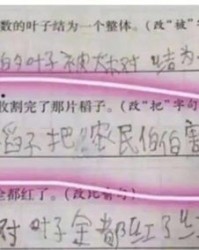 数的叶子结为一个整体。(改"被"
的叶子被大树 结为
收割完了那片稻子。(改"把"字句
稻子把 农民伯伯害
全都红了。(改比喻句)
对 叶子全都红了